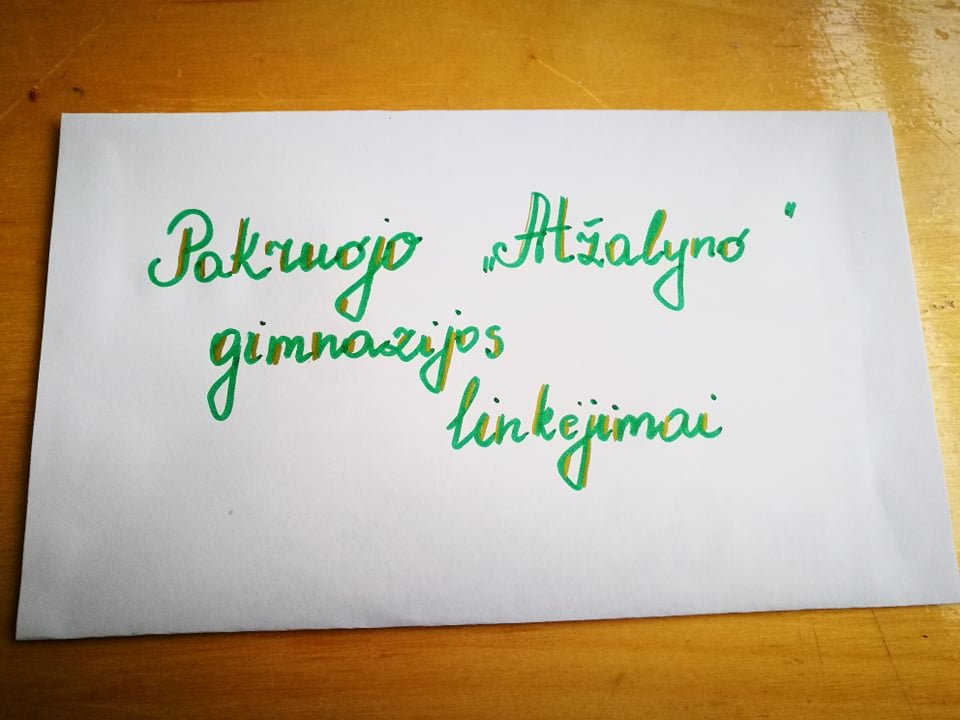 Pakruojo „Atžalyno“
gimnazijos
linkėjimai